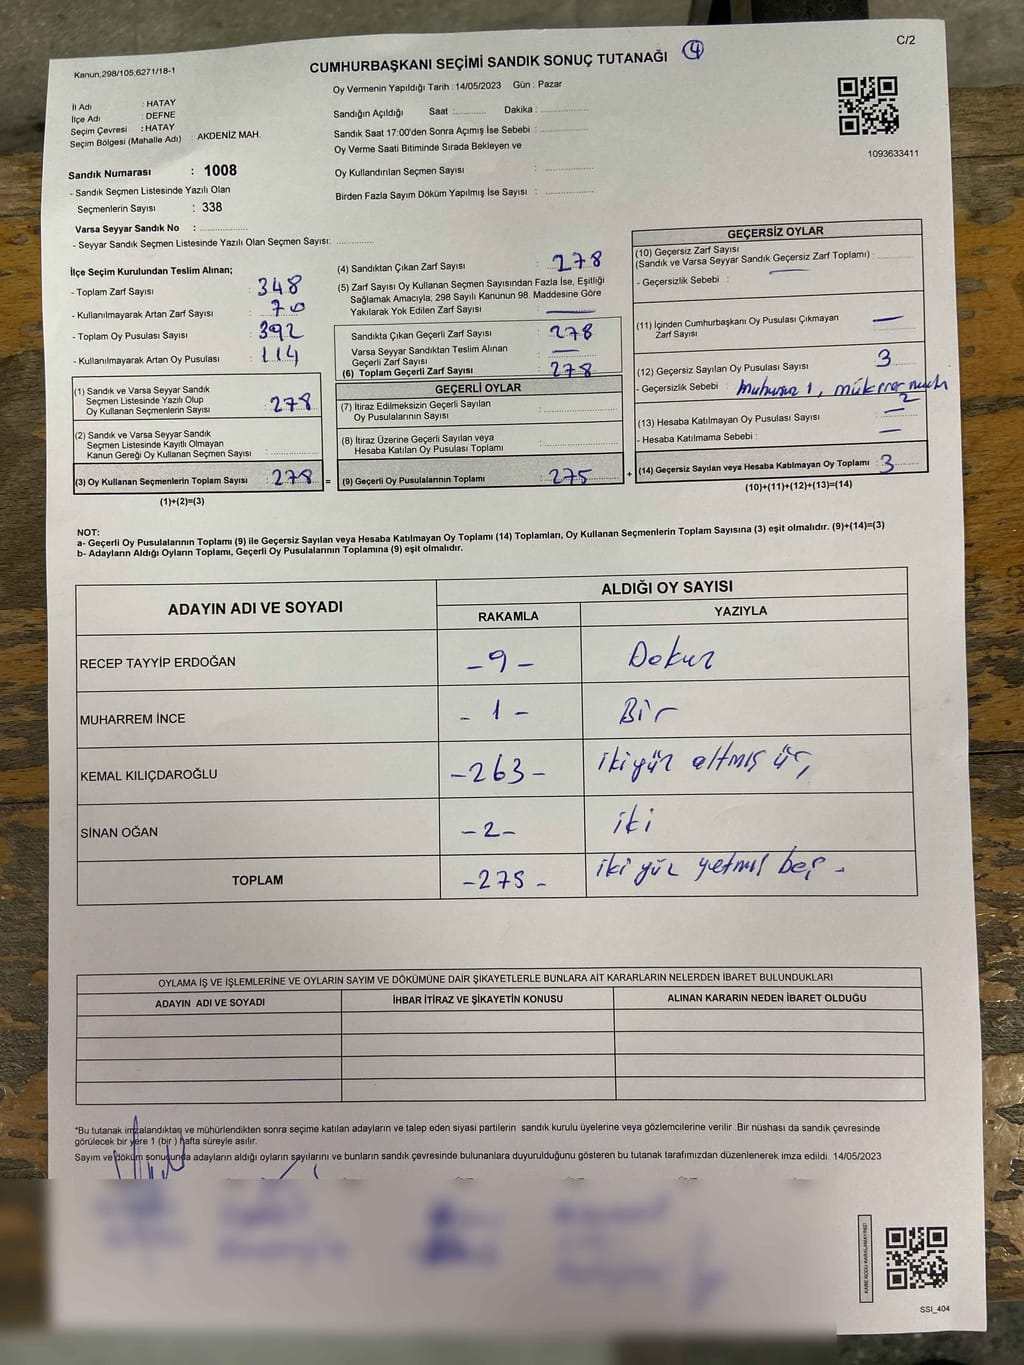 CUMHURBAŞKANI SEÇİMİ SANDIK SONUÇ TUTANAĞI 4
C/2
Kanun;298/105;6271/18-1
İl Adı : HATAY
İlçe Adı : DEFNE
Seçim Çevresi : HATAY
Seçim Bölgesi (Mahalle Adı) : AKDENİZ MAH.
Oy Vermenin Yapıldığı Tarih : 14/05/2023 Gün : Pazar
Sandığın Açıldığı Saat :........... Dakika : ................
Sandık Saat 17:00'den Sonra Açımış İse Sebebi : ................
Oy Verme Saati Bitiminde Sırada Bekleyen ve
Oy Kullandırılan Seçmen Sayısı : ................
Birden Fazla Sayım Döküm Yapılmış İse Sayısı : ................
1093633411
Sandık Numarası : 1008
- Sandık Seçmen Listesinde Yazılı Olan
Seçmenlerin Sayısı : 338
Varsa Seyyar Sandık No : ................
- Seyyar Sandık Seçmen Listesinde Yazılı Olan Seçmen Sayısı: ............
İlçe Seçim Kurulundan Teslim Alınan;
- Toplam Zarf Sayısı : 348
- Kullanılmayarak Artan Zarf Sayısı : 70
- Toplam Oy Pusulası Sayısı : 392
- Kullanılmayarak Artan Oy Pusulası : 114
(1) Sandık ve Varsa Seyyar Sandık
Seçmen Listesinde Yazılı Olup
Oy Kullanan Seçmenlerin Sayısı : 278
(2) Sandık ve Varsa Seyyar Sandık
Seçmen Listesinde Kayıtlı Olmayan
Kanun Gereği Oy Kullanan Seçmen Sayısı : ................
(3) Oy Kullanan Seçmenlerin Toplam Sayısı : 278 =
(1)+(2)=(3)
(4) Sandıktan Çıkan Zarf Sayısı : 278
(5) Zarf Sayısı Oy Kullanan Seçmen Sayısından Fazla İse, Eşitliği
Sağlamak Amacıyla; 298 Sayılı Kanunun 98. Maddesine Göre
Yakılarak Yok Edilen Zarf Sayısı : —
Sandıkta Çıkan Geçerli Zarf Sayısı : 278
Varsa Seyyar Sandıktan Teslim Alınan
Geçerli Zarf Sayısı : —
(6) Toplam Geçerli Zarf Sayısı : 278
GEÇERLİ OYLAR
(7) İtiraz Edilmeksizin Geçerli Sayılan
Oy Pusulalarının Sayısı : ................
(8) İtiraz Üzerine Geçerli Sayılan veya
Hesaba Katılan Oy Pusulası Toplamı : ................
(9) Geçerli Oy Pusulalarının Toplamı : 275 +
GEÇERSİZ OYLAR
(10) Geçersiz Zarf Sayısı
(Sandık ve Varsa Seyyar Sandık Geçersiz Zarf Toplamı) : —
- Geçersizlik Sebebi :
(11) İçinden Cumhurbaşkanı Oy Pusulası Çıkmayan
Zarf Sayısı : —
(12) Geçersiz Sayılan Oy Pusulası Sayısı : 3
- Geçersizlik Sebebi : 1, 2
(13) Hesaba Katılmayan Oy Pusulası Sayısı : —
- Hesaba Katılmama Sebebi : —
(14) Geçersiz Sayılan veya Hesaba Katılmayan Oy Toplamı : 3
(10)+(11)+(12)+(13)=(14)
NOT:
a- Geçerli Oy Pusulalarının Toplamı (9) ile Geçersiz Sayılan veya Hesaba Katılmayan Oy Toplamı (14) Toplamları, Oy Kullanan Seçmenlerin Toplam Sayısına (3) eşit olmalıdır. (9)+(14)=(3)
b- Adayların Aldığı Oyların Toplamı, Geçerli Oy Pusulalarının Toplamına (9) eşit olmalıdır.
ADAYIN ADI VE SOYADI
ALDIĞI OY SAYISI
RAKAMLA YAZIYLA
RECEP TAYYİP ERDOĞAN -9- Dokuz
MUHARREM İNCE -1- Bir
KEMAL KILIÇDAROĞLU -263- ikiyüz altmış üç
SİNAN OĞAN -2- iki
TOPLAM -275- iki yüz yetmiş beş -
OYLAMA İŞ VE İŞLEMLERİNE VE OYLARIN SAYIM VE DÖKÜMÜNE DAİR ŞİKAYETLERLE BUNLARA AİT KARARLARIN NELERDEN İBARET BULUNDUKLARI
ADAYIN ADI VE SOYADI İHBAR İTİRAZ VE ŞİKAYETİN KONUSU ALINAN KARARIN NEDEN İBARET OLDUĞU
*Bu tutanak imzalandıktan ve mühürlendikten sonra seçime katılan adayların ve talep eden siyasi partilerin sandık kurulu üyelerine veya gözlemcilerine verilir .Bir nüshası da sandık çevresinde
görülecek bir yere 1 (bir ) hafta süreyle asılır.
Sayım ve döküm sonucunda adayların aldığı oyların sayılarını ve bunların sandık çevresinde bulunanlara duyurulduğunu gösteren bu tutanak tarafımızdan düzenlenerek imza edildi. 14/05/2023
KARE KODU KARALAMAYINIZ!
SSI_404